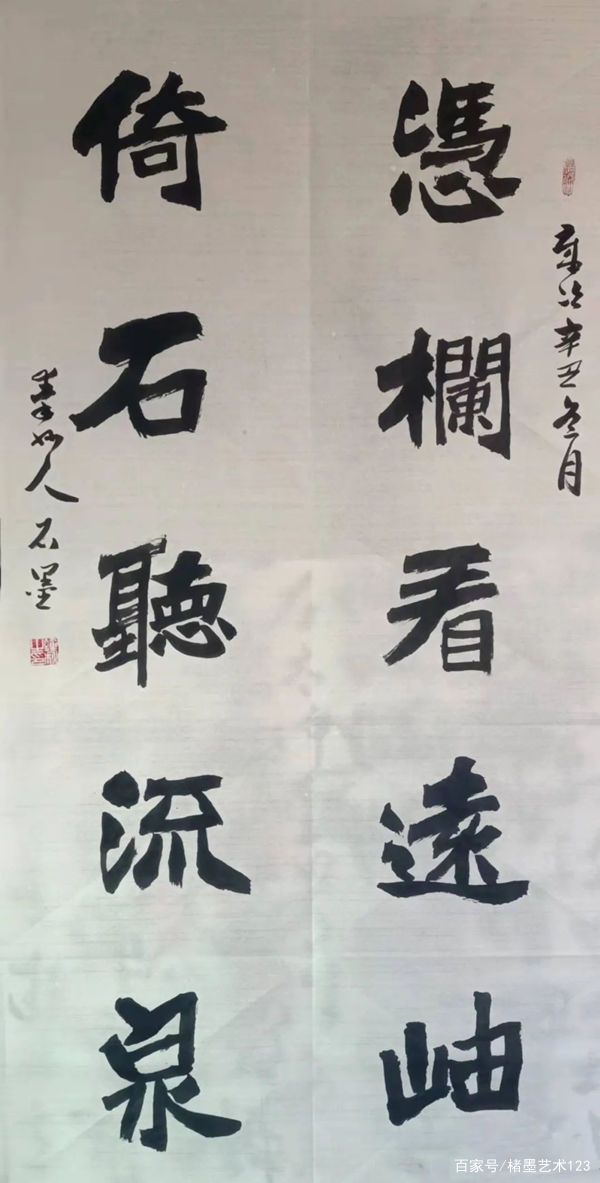 歲次辛丑冬月
憑欄看遠岫
倚石聽流泉
人石墨
百家号/楮墨艺术123